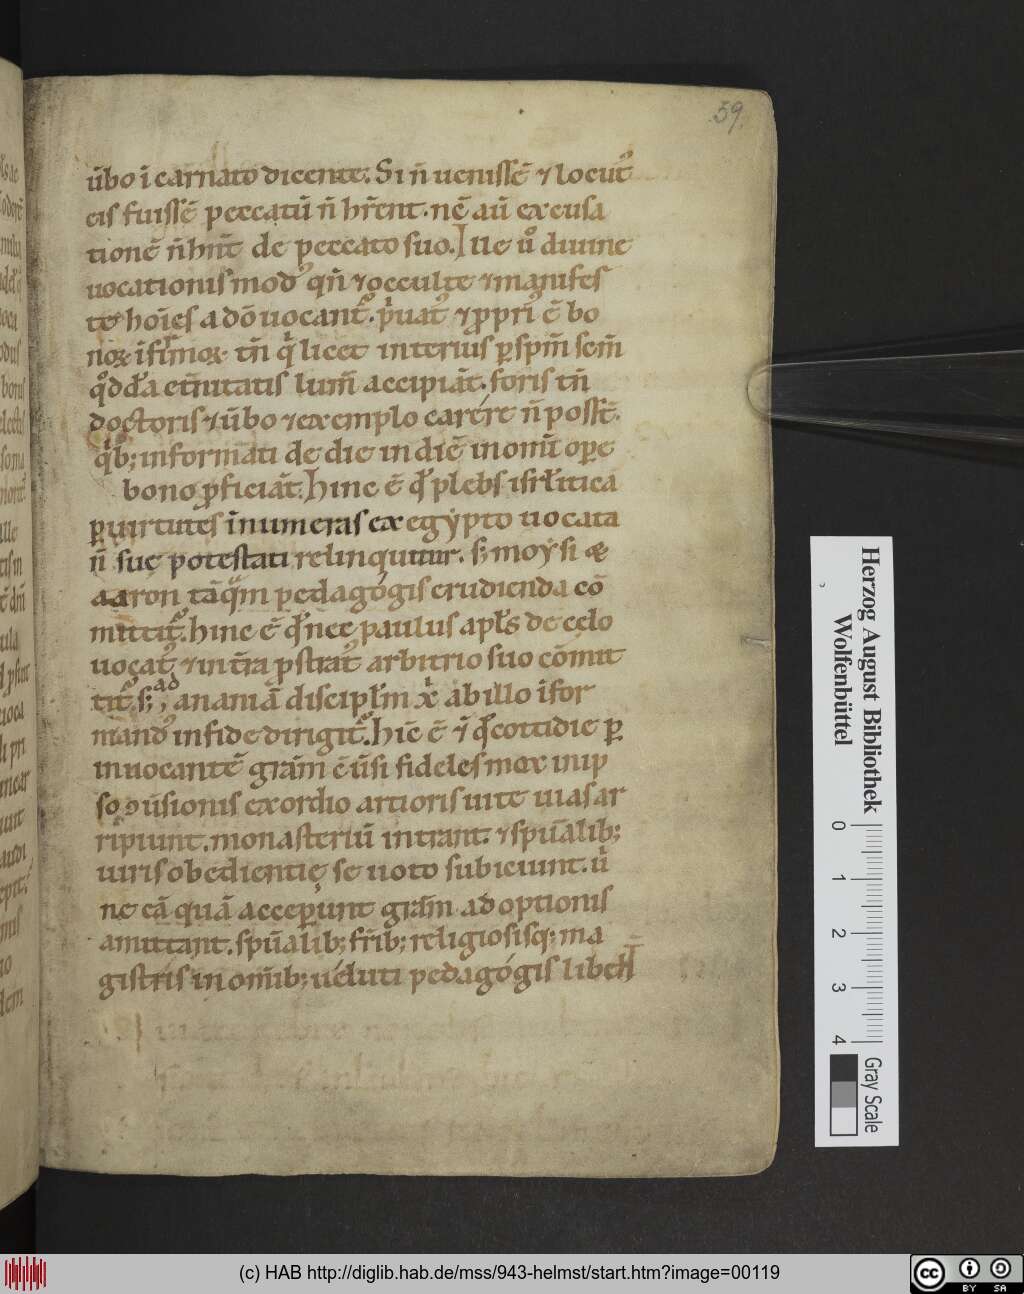 59.
ūbo ī carnato dicente. Si n̄ uenissē ⁊ locut᷒
eis fuissē peccatū n̄ hr̄ent. nc̄ aū excusa
tionē n̄ hn̄t de peccato suo. Ille ů diuine
uocationis mod᷒ qn̄ ⁊ occulte ⁊ manifes
te hoīes a dō uocant᷒. p̓uat᷒ ⁊ ꝓpri᷒ ē bo
noꝝ ī firmoꝝ tn̄ q̓ licet interius ꝑ spm̄ sc̄m
lum̄ accipiāt. foris tn̄
doctoris ⁊ ūbo ⁊ exemplo carere n̄ possc̄.
q̓b; informati de die in diē in om̄i oꝑe
bono ꝓficiāt. Hinc ē qď plebs isrł̄itica
ꝑ uirtutes īnumeras ex egẏpto uocata
n̄ suę potestati relinquitur. s; moẏsi &
aaron tāq̄m pedagógis erudienda cō
mittit᷒. hinc ē qď nec paulus apľs de cęlo
uocat᷒ ⁊ in t̄ra ꝓstrat᷒ arbitrio suo cōmit
tit᷒. s; ad ananiā discipľm xp̓ī ab illo īfor
mand᷒ in fide dirigit᷒. hīc ē ⁊ qď cottidie ꝑ
inuocantē gr̄am ̄cūsi fideles mox in ip
so ꝯūsionis exordio artioris uite uias ar
ripiunt. monasteriū intrant. ⁊ spūalib;
uiris obedientię se uoto subiciunt. ů
ne eā quā acceꝑunt gr̄am adoptionis
amittant. spūalib; fr̄ib; religiosisq; ma
gistris in om̄ib; uéluti pedagógis libēt̄
Herzog August Bibliothek
Wolfenbüttel
0 1 2 3 4
Gray Scale
(c) HAB http://diglib.hab.de/mss/943-helmst/start.htm?image=00119
cc BY SA